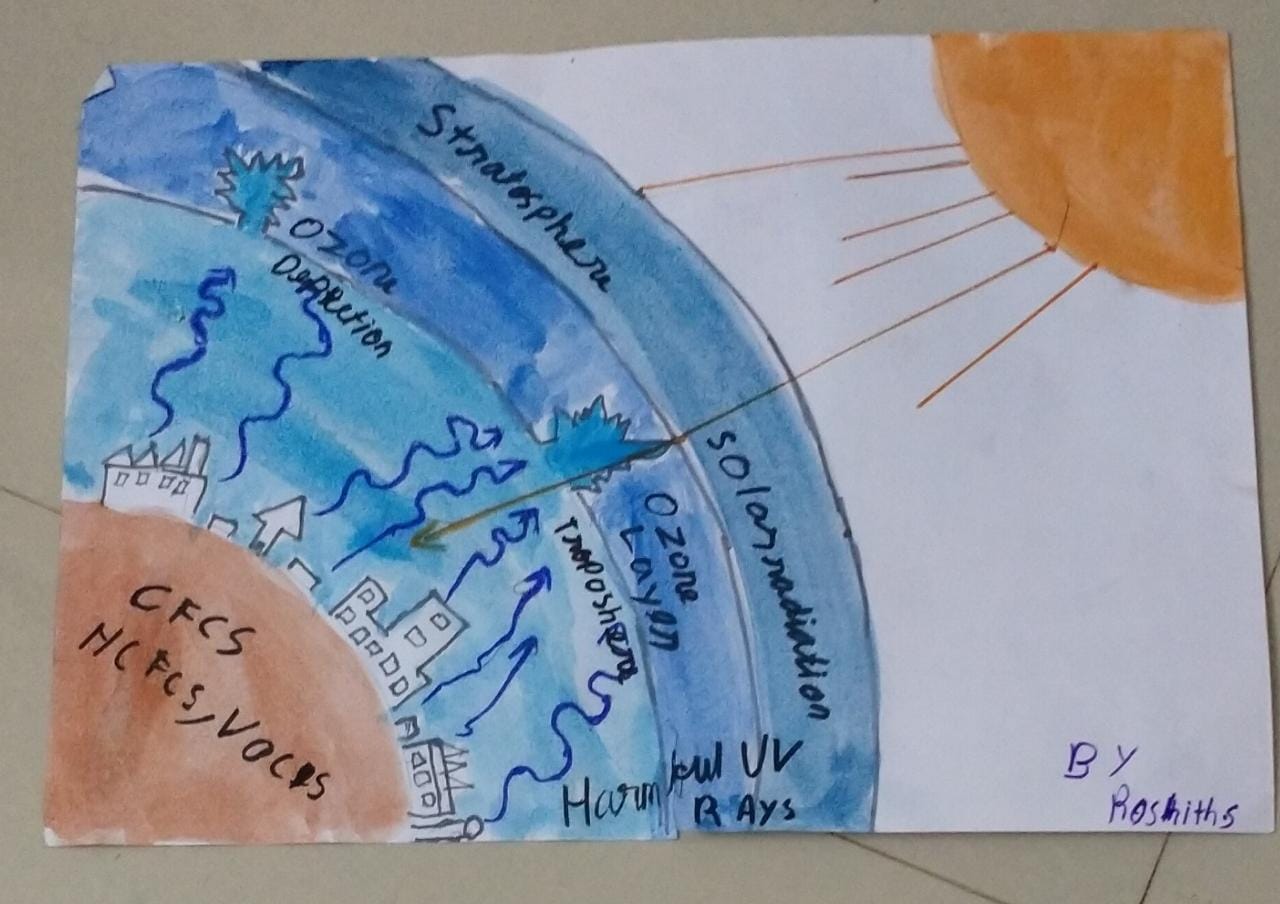 Stratosphere
Ozone
Depletion
Solarradiation
Ozone
Layer
Troposhere
CFCS
HCFCS, VOCS
Harmful UV
RAys
BY
Roshiths